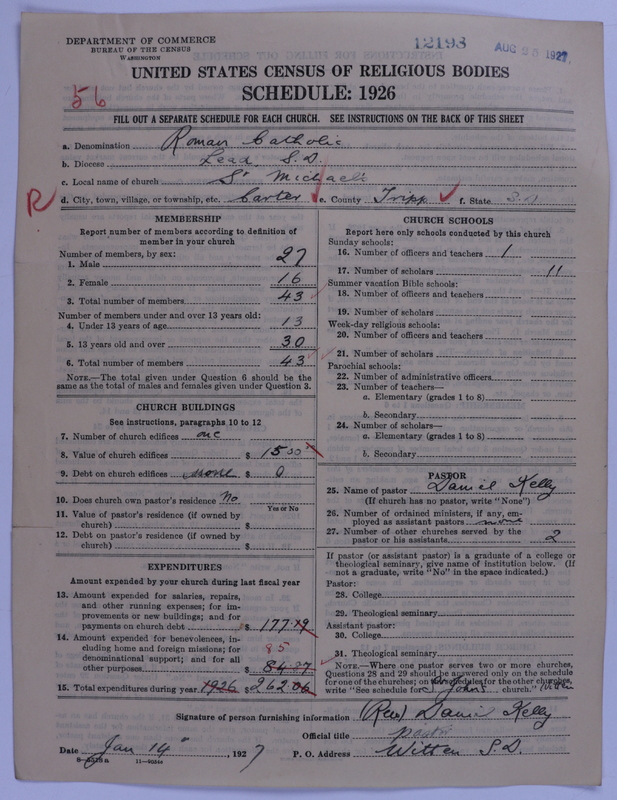 DEPARTMENT OF COMMERCE
BUREAU OF THE CENSUS
WASHINGTON
12193
AUG 25 1927
UNITED STATES CENSUS OF RELIGIOUS BODIES
SCHEDULE: 1926
56
FILL OUT A SEPARATE SCHEDULE FOR EACH CHURCH. SEE INSTRUCTIONS ON THE BACK OF THIS SHEET
a. Denomination Roman Catholic
b. Diocese Lead S.D.
c. Local name of church St Michael's
R d. City, town, village, or township, etc. Carter e. County Tripp f. State S.D.
MEMBERSHIP
Report number of members according to definition of
member in your church
Number of members, by sex:
1. Male 27
2. Female 16
3. Total number of members 43
Number of members under and over 13 years old:
4. Under 13 years of age 13
5. 13 years old and over 30
6. Total number of members 43
NOTE.—The total given under Question 6 should be the
same as the total of males and females given under Question 3.
CHURCH BUILDINGS
See instructions, paragraphs 10 to 12
7. Number of church edifices one
8. Value of church edifices $ 1500
9. Debt on church edifices none $ 0
10. Does church own pastor's residence No
Yes or No
11. Value of pastor's residence (if owned by
church) $
12. Debt on pastor's residence (if owned by
church) $
EXPENDITURES
Amount expended by church during last fiscal year
13. Amount expended for salaries, repairs,
and other running expenses; for im-
provements or new buildings; and for
payments on church debt $ 177.19
14. Amount expended for benevolences, in-
cluding home and foreign missions; for
denominational support; and for all
other purposes $ 84.87
85
15. Total expenditures during year 1926 $ 262.06
CHURCH SCHOOLS
Report here only schools conducted by this church
Sunday schools:
16. Number of officers and teachers 1
17. Number of scholars 11
Summer vacation Bible schools:
18. Number of officers and teachers
19. Number of scholars
Week-day religious schools:
20. Number of officers and teachers
21. Number of scholars
Parochial schools:
22. Number of administrative officers
23. Number of teachers—
a. Elementary (grades 1 to 8)
b. Secondary
24. Number of scholars—
a. Elementary (grades 1 to 8)
b. Secondary
PASTOR
25. Name of pastor Daniel Kelly
(If church has no pastor, write "None")
26. Number of ordained ministers, if any, em-
ployed as assistant pastors none
27. Number of other churches served by the
pastor or his assistants 2
If pastor (or assistant pastor) is a graduate of a college or
theological seminary, give name of institution below. (If
not a graduate, write "No" in the space indicated.)
Pastor:
28. College
29. Theological seminary
Assistant pastor:
30. College
31. Theological seminary
NOTE.—Where one pastor serves two or more churches,
Questions 28 and 29 should be answered only on the schedule
for one of the churches; on the schedules for the other churches,
write "See schedule for St Johns church." Witten
Signature of person furnishing information (Rev) Daniel Kelly
Official title pastor
Date Jan 14, 1927 P. O. Address Witten S.D.
11—40544